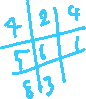 4 2 4
5 6 1
8 3